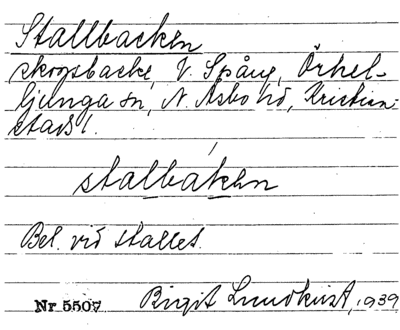 Stallbacken
skogsbacke, V. Spång, Örkel-
ljunga sn, N. Åsbo hd, Kristian-
stads l.
stalbaken
Bel. vid stallet.
Nr 5507 Birgit Lundkvist, 1939